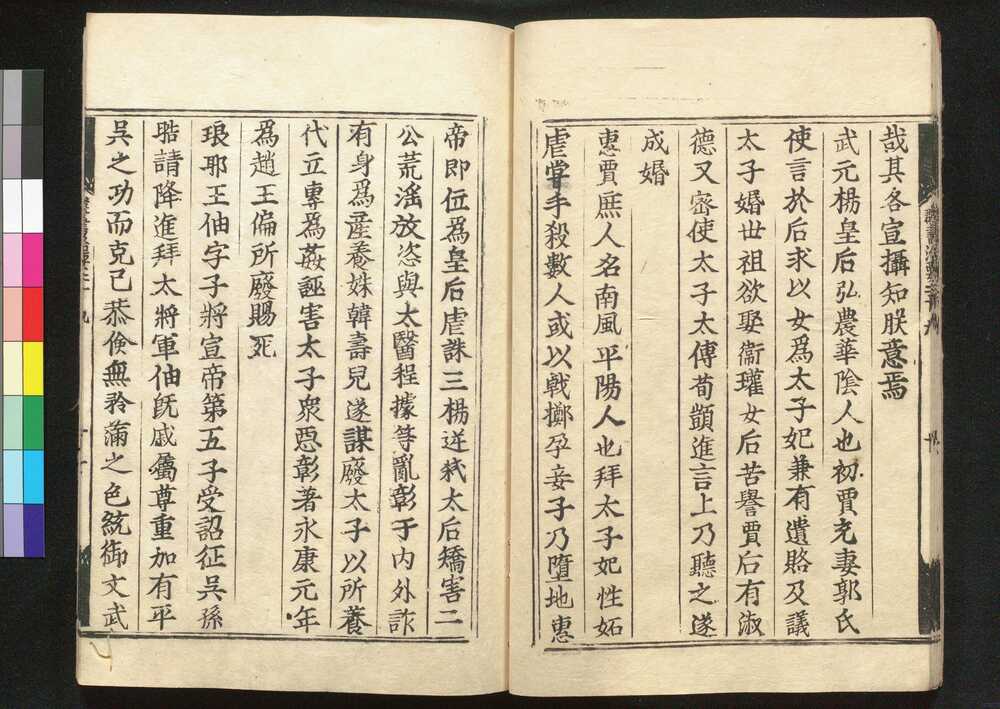 哉其各宣攝知朕意焉
武元楊皇后弘農華陰人也初賈充妻郭氏
使言於后求以女爲太子妃兼有遺賂及議
太子婚世祖欲娶衞瓘女后苦譽賈后有淑
德又宻使太子太傅荀顗進言上乃聽之遂
成婚
惠賈庶人名南風平陽人也拜太子妃性妬
虐甞手殺數人或以戟擲孕妾子乃墮地惠
帝即位爲皇后虐誅三楊逆弒太后矯害二
公荒淫放恣與太醫程據等亂彰于内外詐
有身爲産養姝韓壽兒遂謀廢太子以所養
代立專爲姦誣害太子衆惡彰著永康元年
爲趙王倫所廢賜死
琅耶王伷字子將宣帝第五子受詔征吳孫
晧請降進拜太將軍伷旣戚屬尊重加有平
吳之功而克己恭儉無矜滿之色統御文武